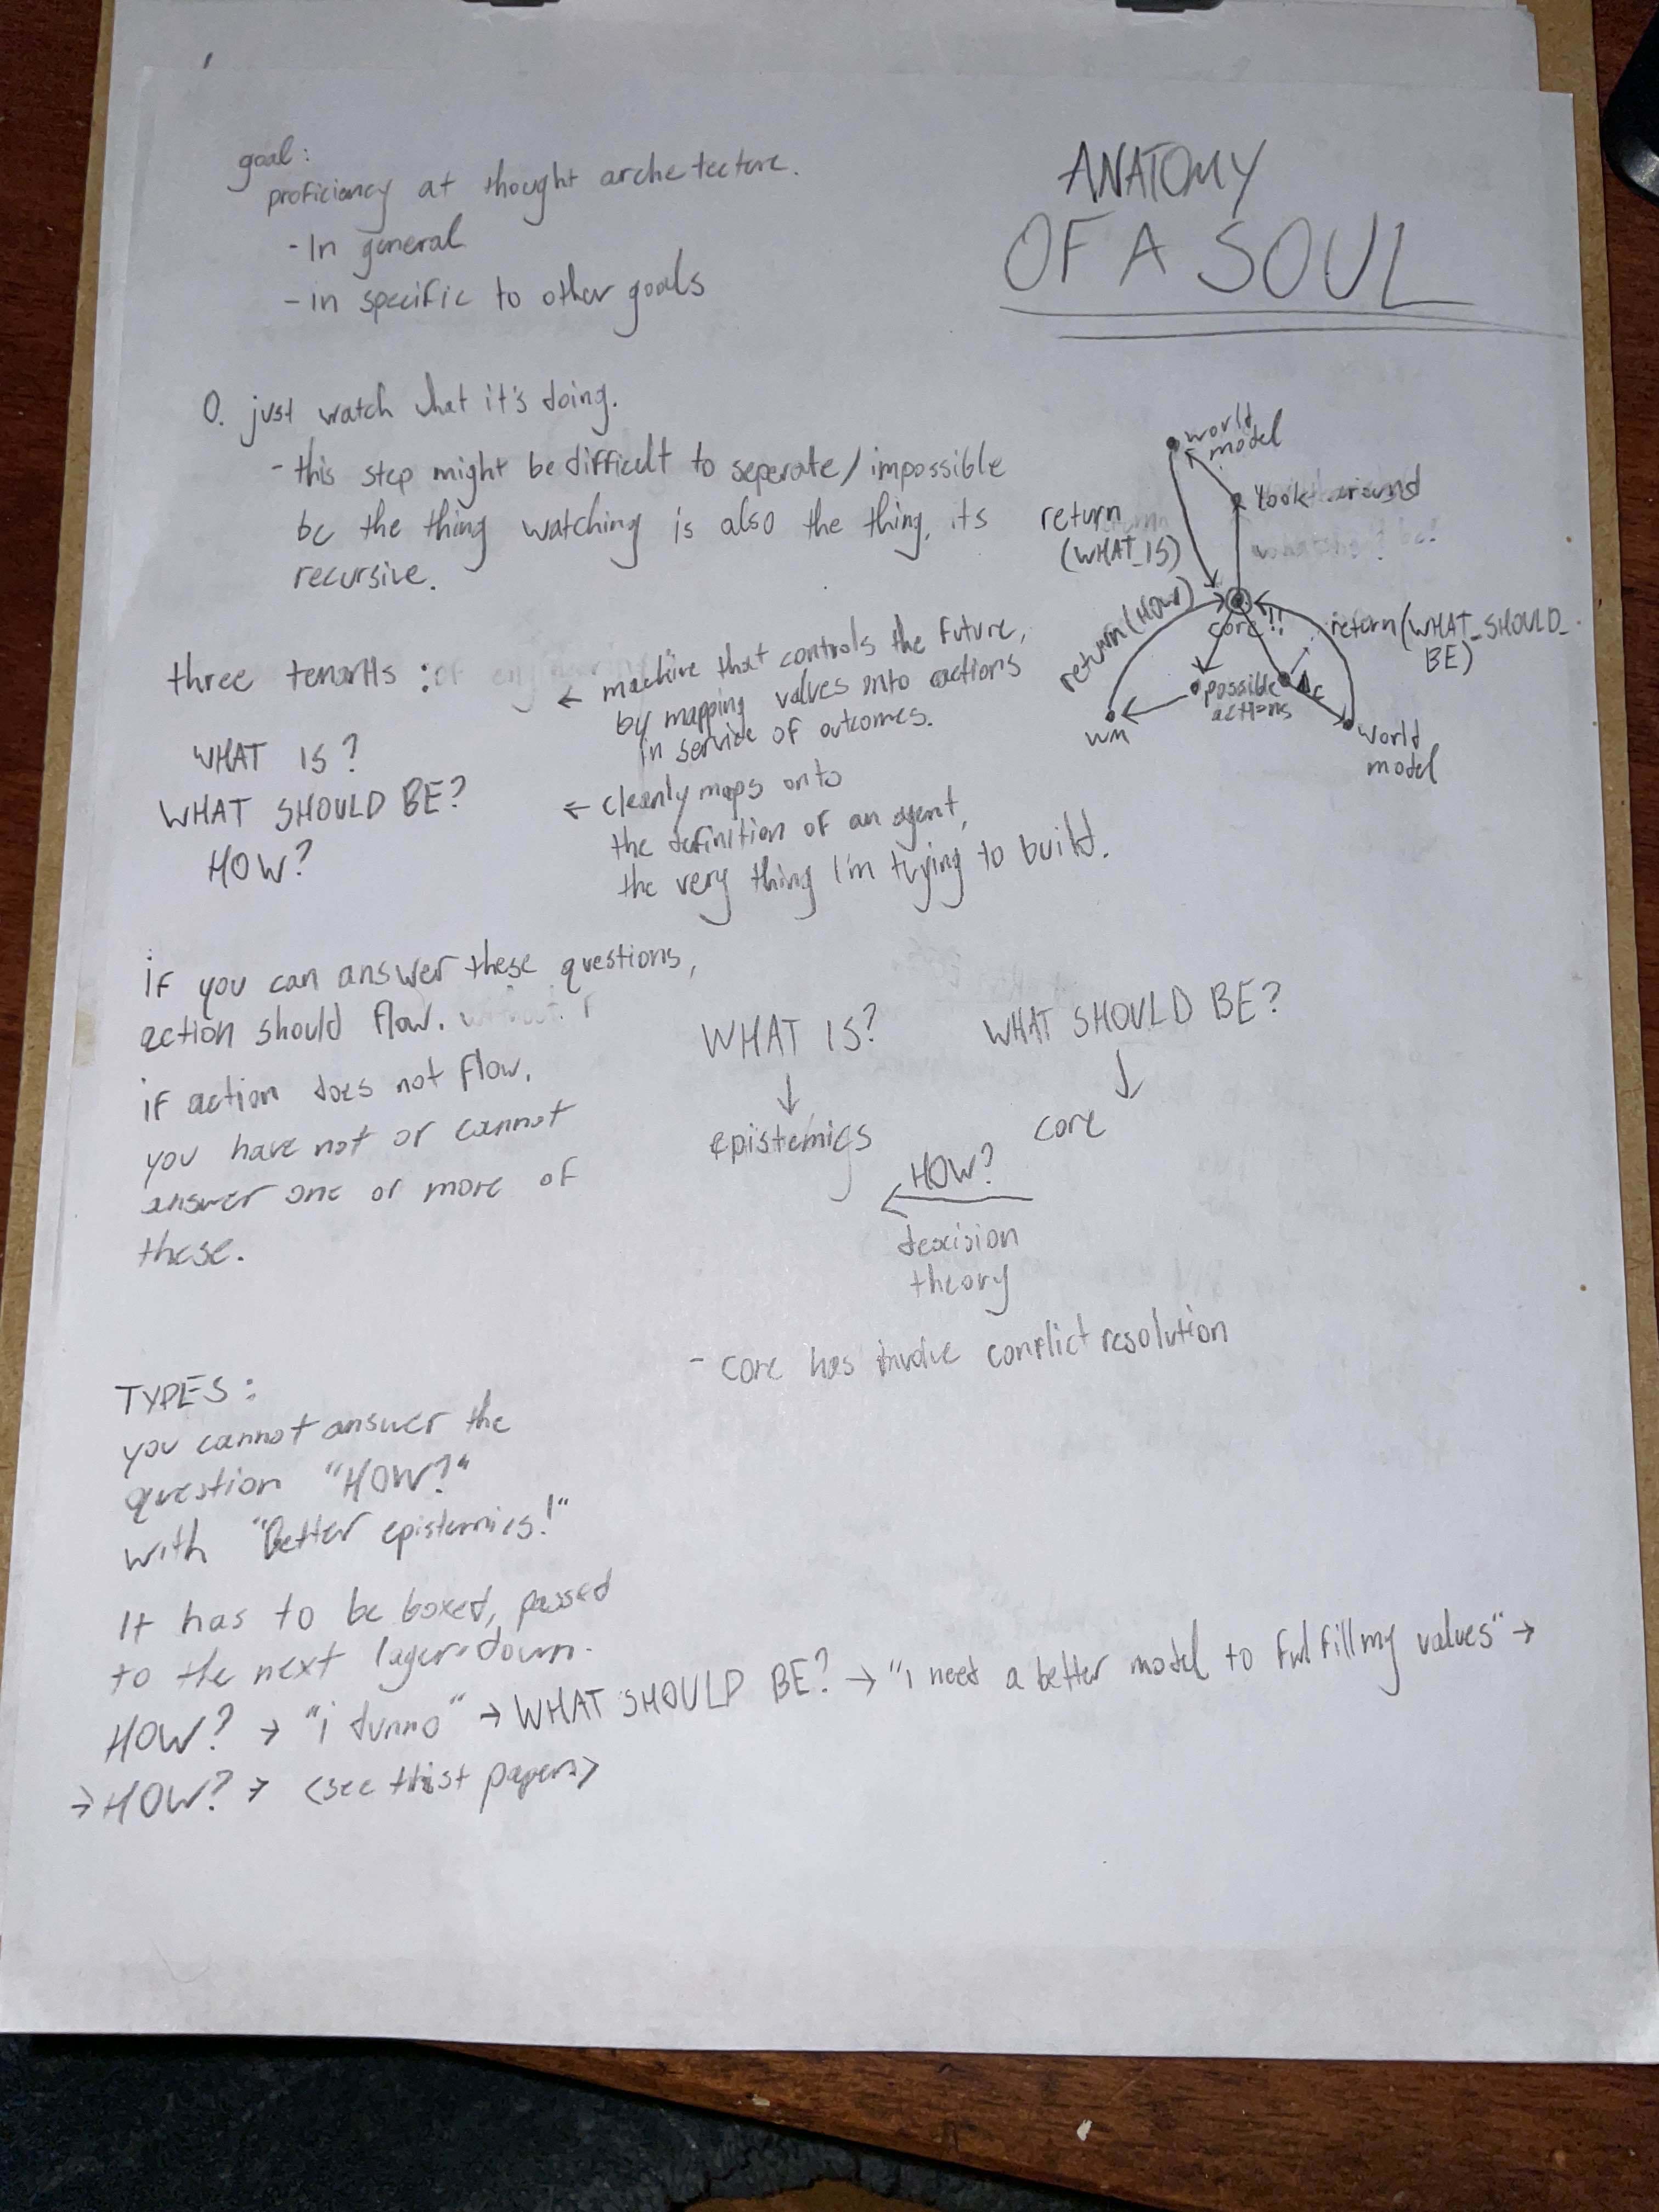 ANATOMY
OF A SOUL
goal:
proficiency at thought archetecture.
- In general
- in specific to other goals
0. just watch what it's doing.
- this step might be difficult to seperate/impossible
bc the thing watching is also the thing, its
recursive.
world
model
look around
return
(WHAT_IS)
return(HOW)
core!!
return(WHAT_SHOULD_
BE)
possible
actions
Δc
wm
world
model
three tenants:
WHAT IS?
WHAT SHOULD BE?
HOW?
← machine that controls the future,
by mapping values onto actions
in service of outcomes.
← cleanly maps onto
the definition of an agent,
the very thing I'm trying to build.
if you can answer these questions,
action should flow.
if action does not flow,
you have not or cannot
answer one or more of
these.
WHAT IS?
↓
epistemics
WHAT SHOULD BE?
↓
core
HOW?
←
descision
theory
- core has involve conflict resolution
TYPES:
you cannot answer the
question "HOW?"
with "Better epistemics!"
It has to be boxed, passed
to the next layer down.
HOW? → "i dunno" → WHAT SHOULD BE? → "i need a better model to fulfill my values" →
→ HOW? → (see paper)